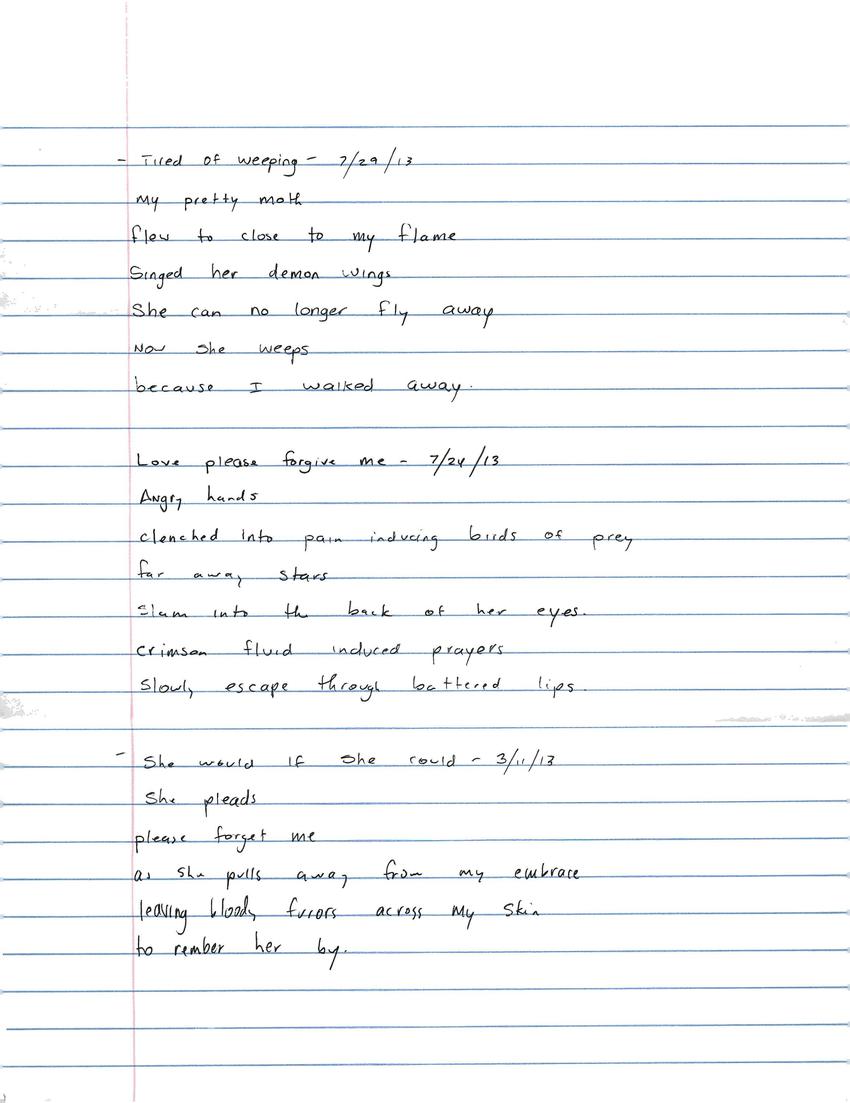 - Tired of weeping - 7/29/13
My pretty moth
flew to close to my flame
Singed her demon wings
She can no longer fly away
Now she weeps
because I walked away.
Love please forgive me - 7/24/13
Angry hands
clenched into pain inducing birds of prey
far away stars
Slam into the back of her eyes.
Crimson fluid induced prayers
Slowly escape through battered lips.
- She would if she could - 3/11/13
She pleads
please forget me
as she pulls away from my embrace
leaving bloody furors across my skin
to rember her by.